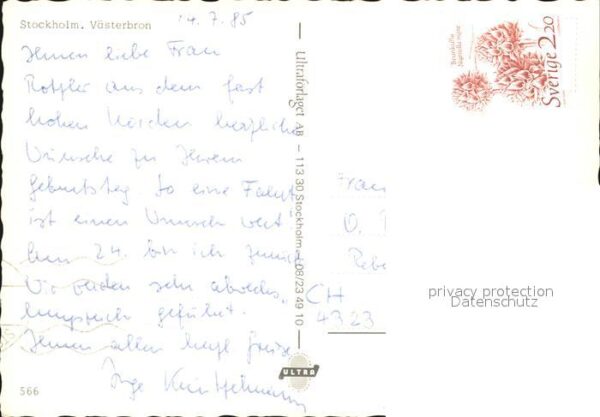 Stockholm. Västerbron
14.7.85
Ihnen liebe Frau
aus dem fast
hohen Norden herzliche
Wünsche zu Ihrem
Geburtstag. So eine Fahrt
ist einen Wunsch wert!
24. bin ich zurück
Wir werden sehr abwechs-
lungsreich geführt.
Ihnen allen herzl Grüsse
Inge
566
Ultraförlaget AB – 113 30 Stockholm – 08/23 49 10
ULTRA
Brunkulla
Nigritella nigra
Sverige 2.20
Frau
O.
Rebe
CH
4323
privacy protection
Datenschutz